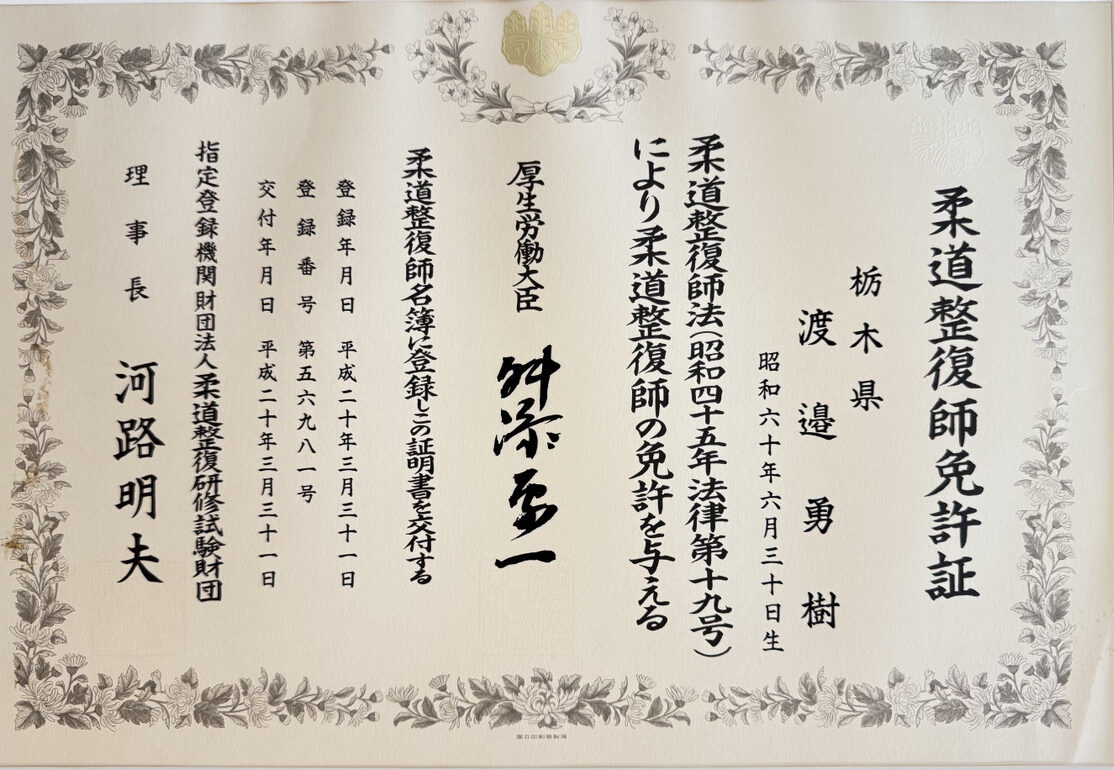 柔道整復師免許証
栃木県
渡邉勇樹
昭和六十年六月三十日生
柔道整復師法(昭和四十五年法律第十九号)
により柔道整復師の免許を与える
厚生労働大臣 舛添要一
柔道整復師名簿に登録しこの証明書を交付する
登録年月日 平成二十年三月三十一日
登録番号 第五六九八一号
交付年月日 平成二十年三月三十一日
指定登録機関財団法人柔道整復研修試験財団
理事長 河路明夫